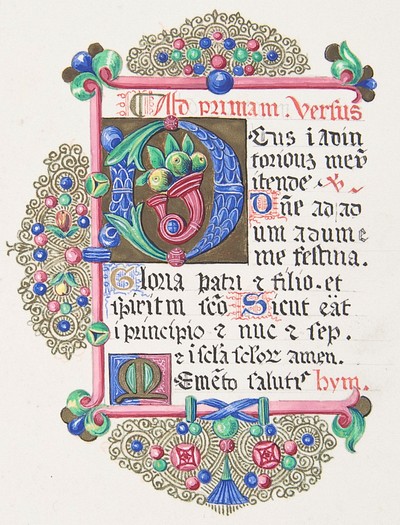 Ad primam. Versus
DEus i adiu
toriouz meū
itende
Dñe ad ad
um a dume
me festina.
Gloria patri ⁊ filio. et
spiritm sc̄o Sicut eāt
i principio ⁊ nuc ⁊ sep.
⁊ i scl̄a sclor amen.
MEmēto salutis hym.